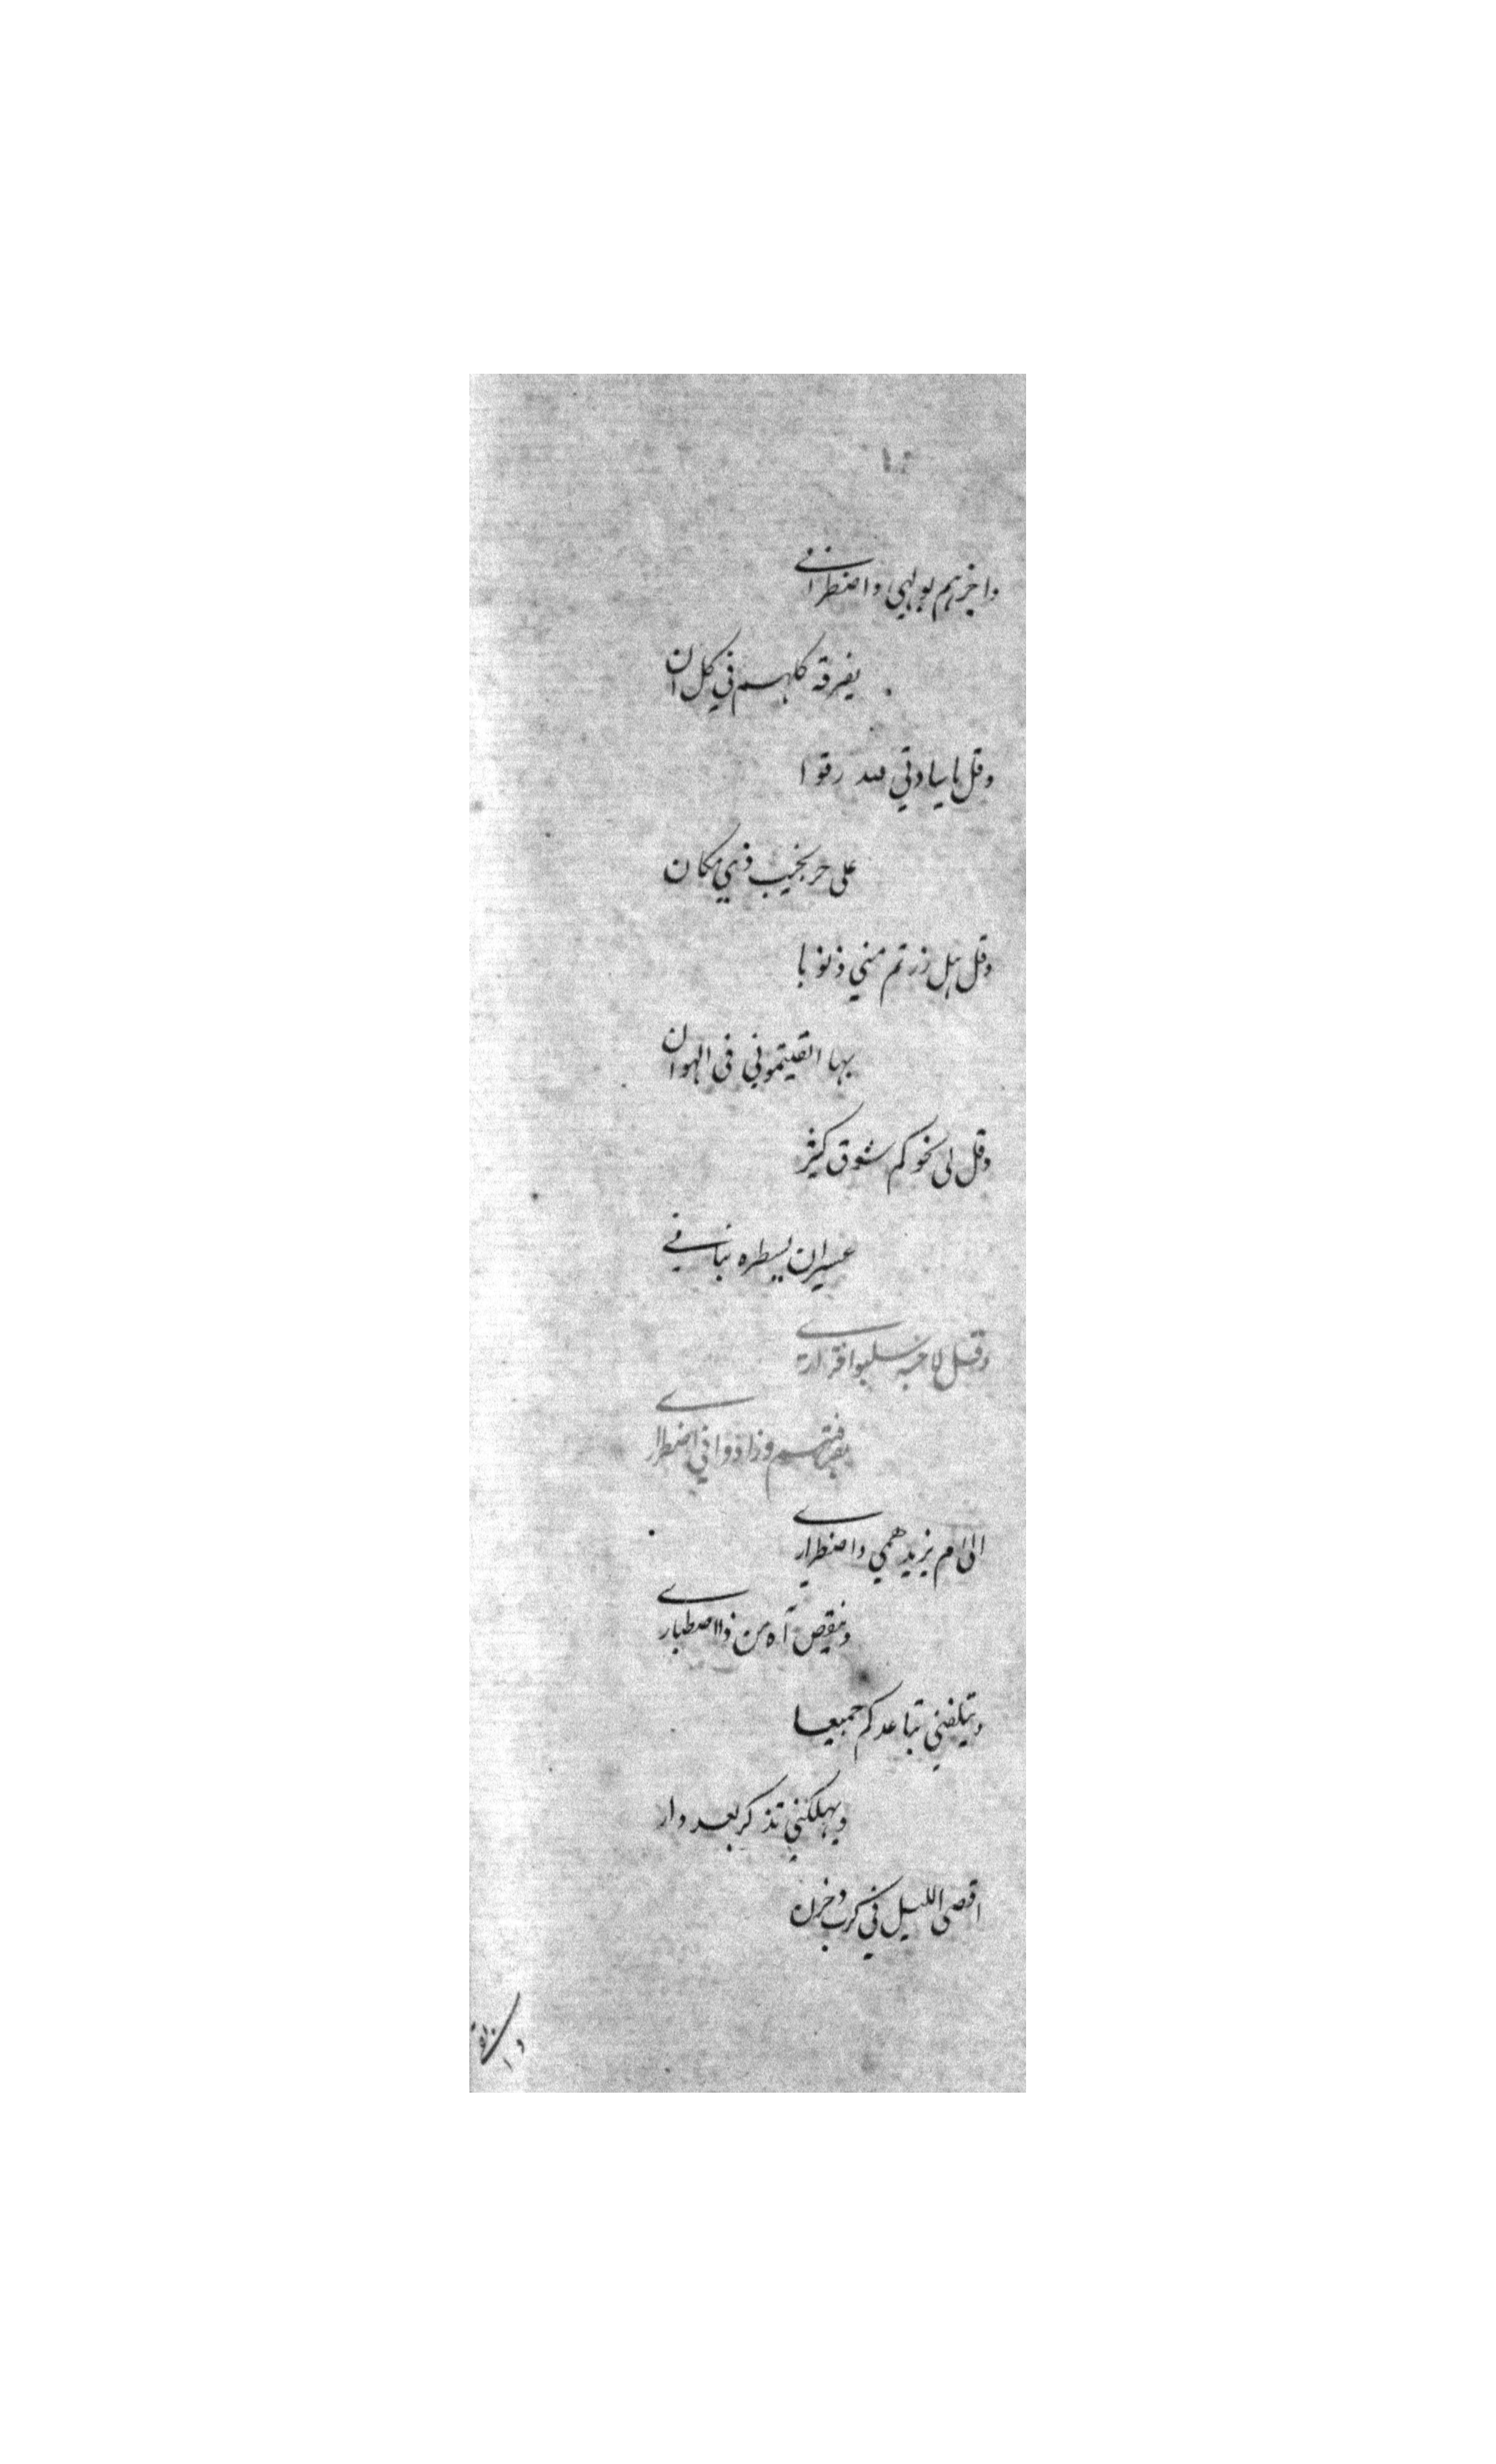 واخبرهم بولهي واضطراني
بفرقة كلهم في كل ان
وقل يا سادتي قد رقوا
على حر نجيب ذي مكان
وقل هل زرتم مني ذنوبا
بها القيتموني في الهوان
وقل لي نحوكم شوق كثير
عسير ان يسطره بناني
وقل لاحبة سلبوا قراري
بفرقتهم وزادوا في اضطراري
الى ام يزيد همي واضطراري
وينقص آه من ذا اصطباري
ويتلفني تباعدكم جميعا
ويهلكني تذكر بعد دار
اقضى الليل في كرب وحزن